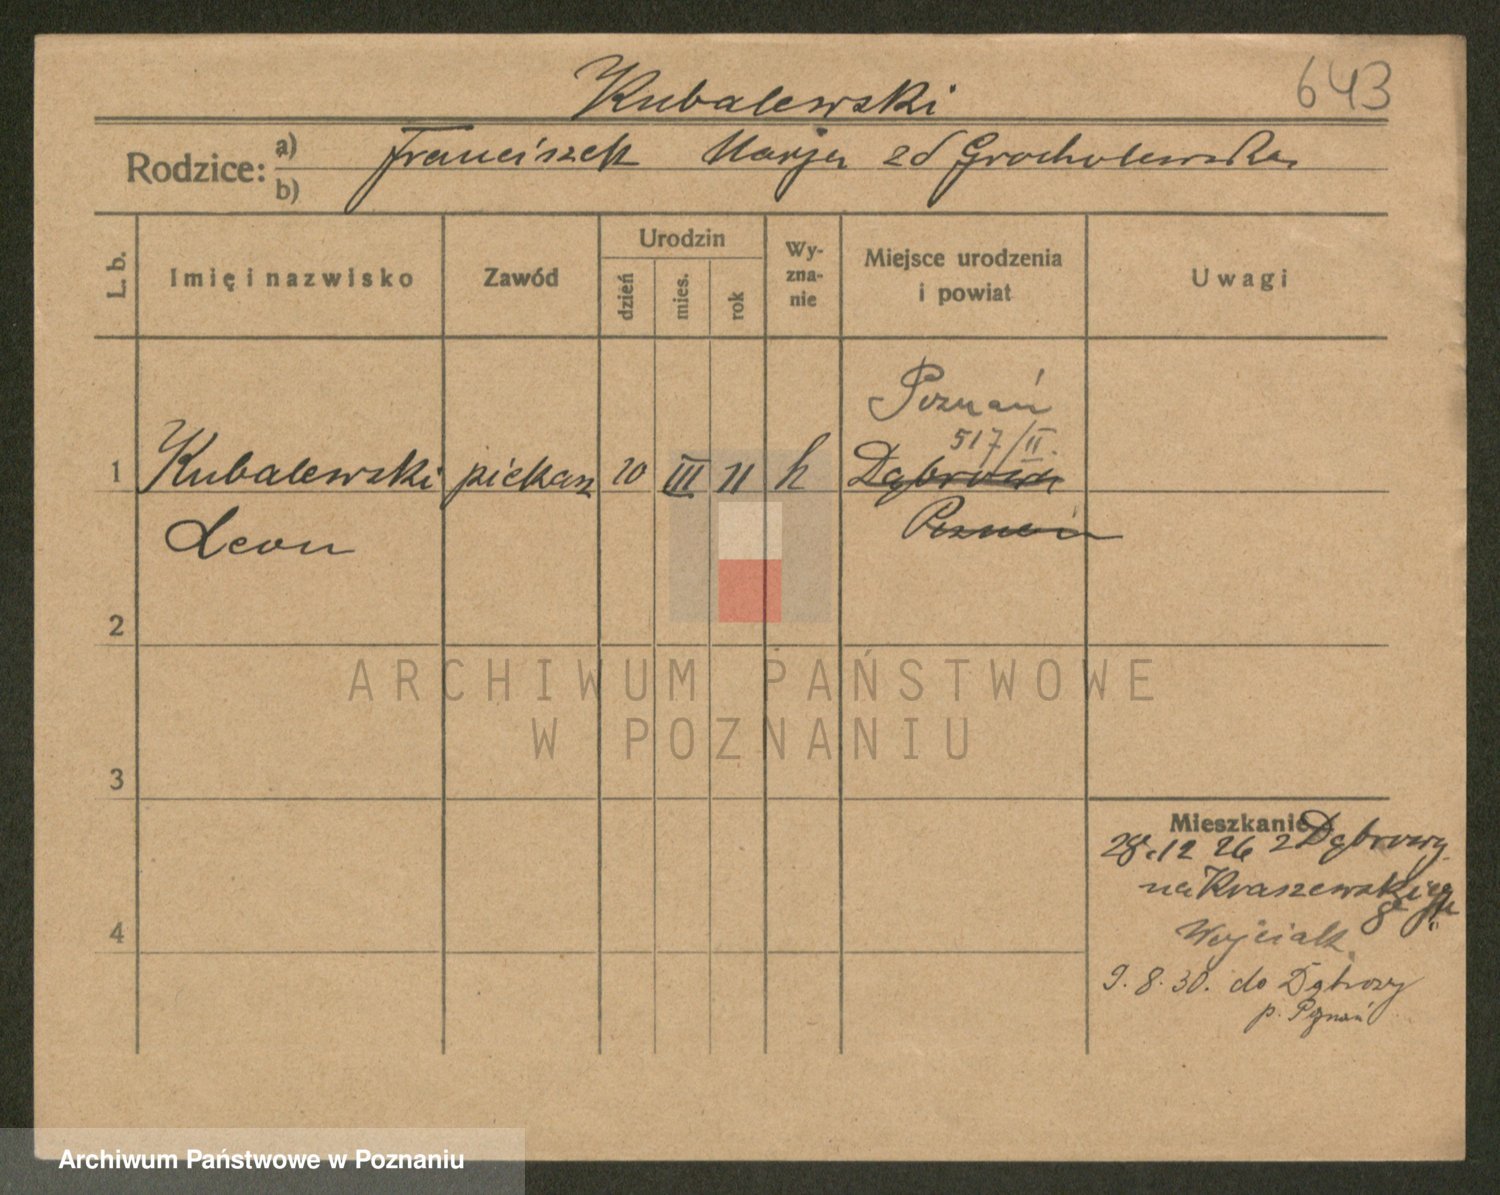 Kubalewski
643
Rodzice: a) b)
Franciszek Marja zd Grocholewska
L. b.
Imię i nazwisko
Zawód
Urodzin
dzień
mies.
rok
Wy-
zna-
nie
Miejsce urodzenia
i powiat
Uwagi
Poznań
517/II.
1 Kubalewski piekarz 10 III 11 k Dąbrowa
Leon Poznań
2
3
4
Mieszkanie
28.12 26 z Dąbrowy
na Kraszewskiego
8
Wojciak
9. 8. 30. do Dąbrowy
p. Poznań
ARCHIWUM PAŃSTWOWE
W POZNANIU
Archiwum Państwowe w Poznaniu